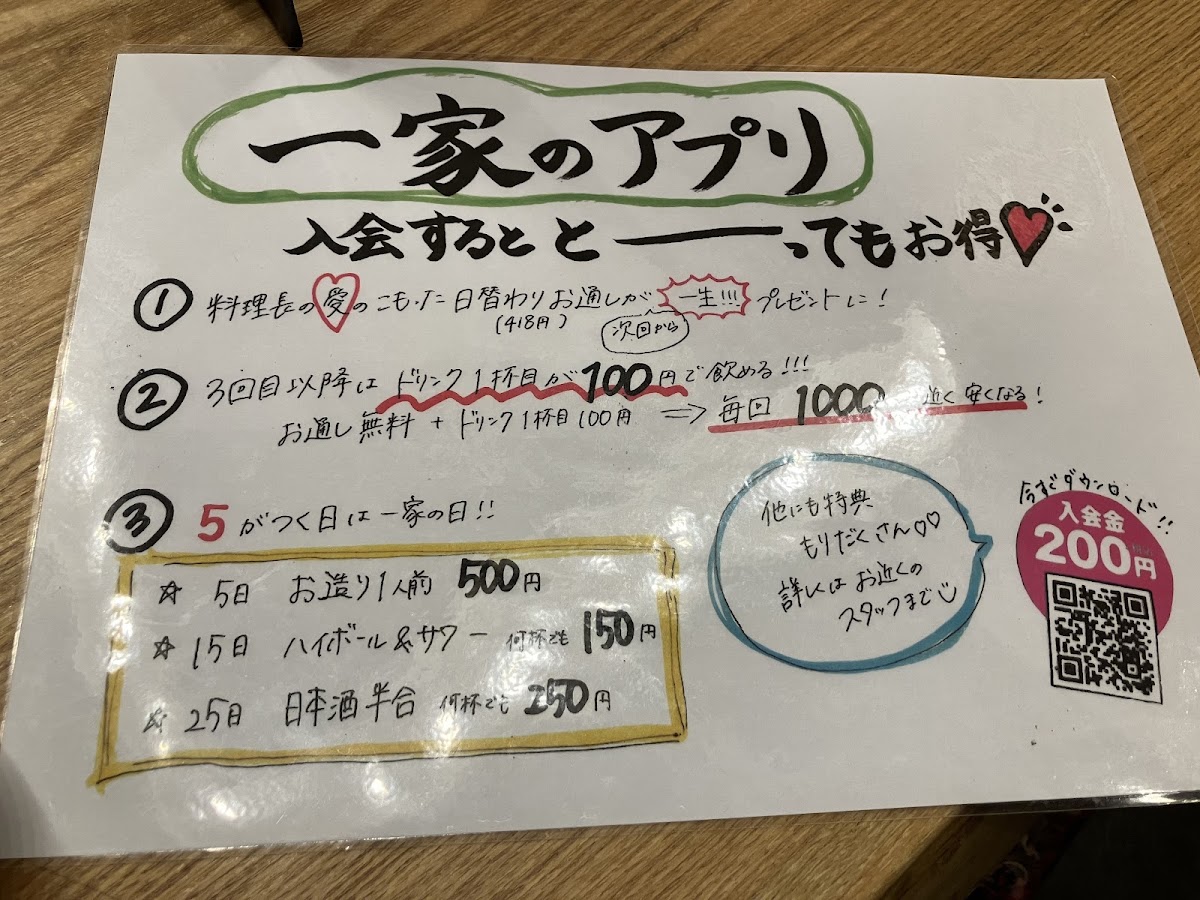 一家のアプリ
入会するととーーってもお得
① 料理長の愛のこもった日替わりお通しが一生!!!プレゼントに!
(418円)
次回から
② 3回目以降はドリンク1杯目が100円で飲める!!!
お通し無料+ドリンク1杯目100円 ⇒ 毎回1000円近く安くなる!
③ 5がつく日は一家の日!!
☆ 5日 お造り1人前 500円
☆ 15日 ハイボール&サワー 何杯でも 150円
☆ 25日 日本酒半合 何杯でも 250円
他にも特典
もりだくさん♡♡
詳しくはお近くの
スタッフまで
今すぐダウンロード!!
入会金
200円